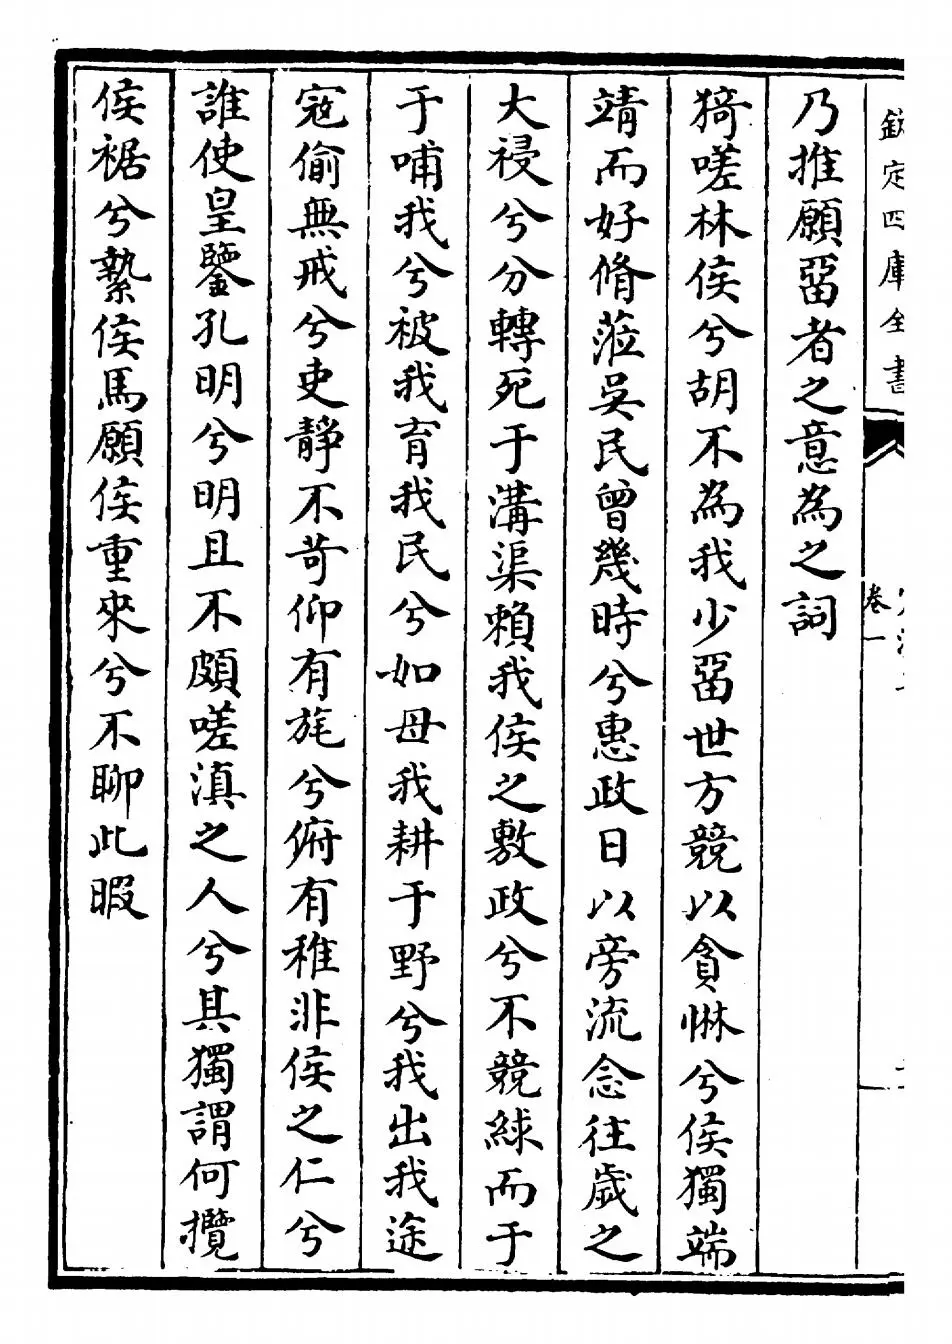 欽定四庫全書
卷一
乃推願畱者之意為之詞
猗嗟林侯兮胡不為我少畱世方競以貪惏兮侯獨端
靖而好脩蒞吳民曾幾時兮惠政日以旁流念往歲之
大祲兮分轉死于溝渠賴我侯之敷政兮不競絿而于
于哺我兮被我育我民兮如母我耕于野兮我出我途
宼偷無戒兮吏靜不苛仰有旄兮俯有稚非侯之仁兮
誰使皇鑒孔明兮明且不頗嗟滇之人兮其獨謂何攬
侯裾兮縶侯馬願侯重來兮不聊此暇